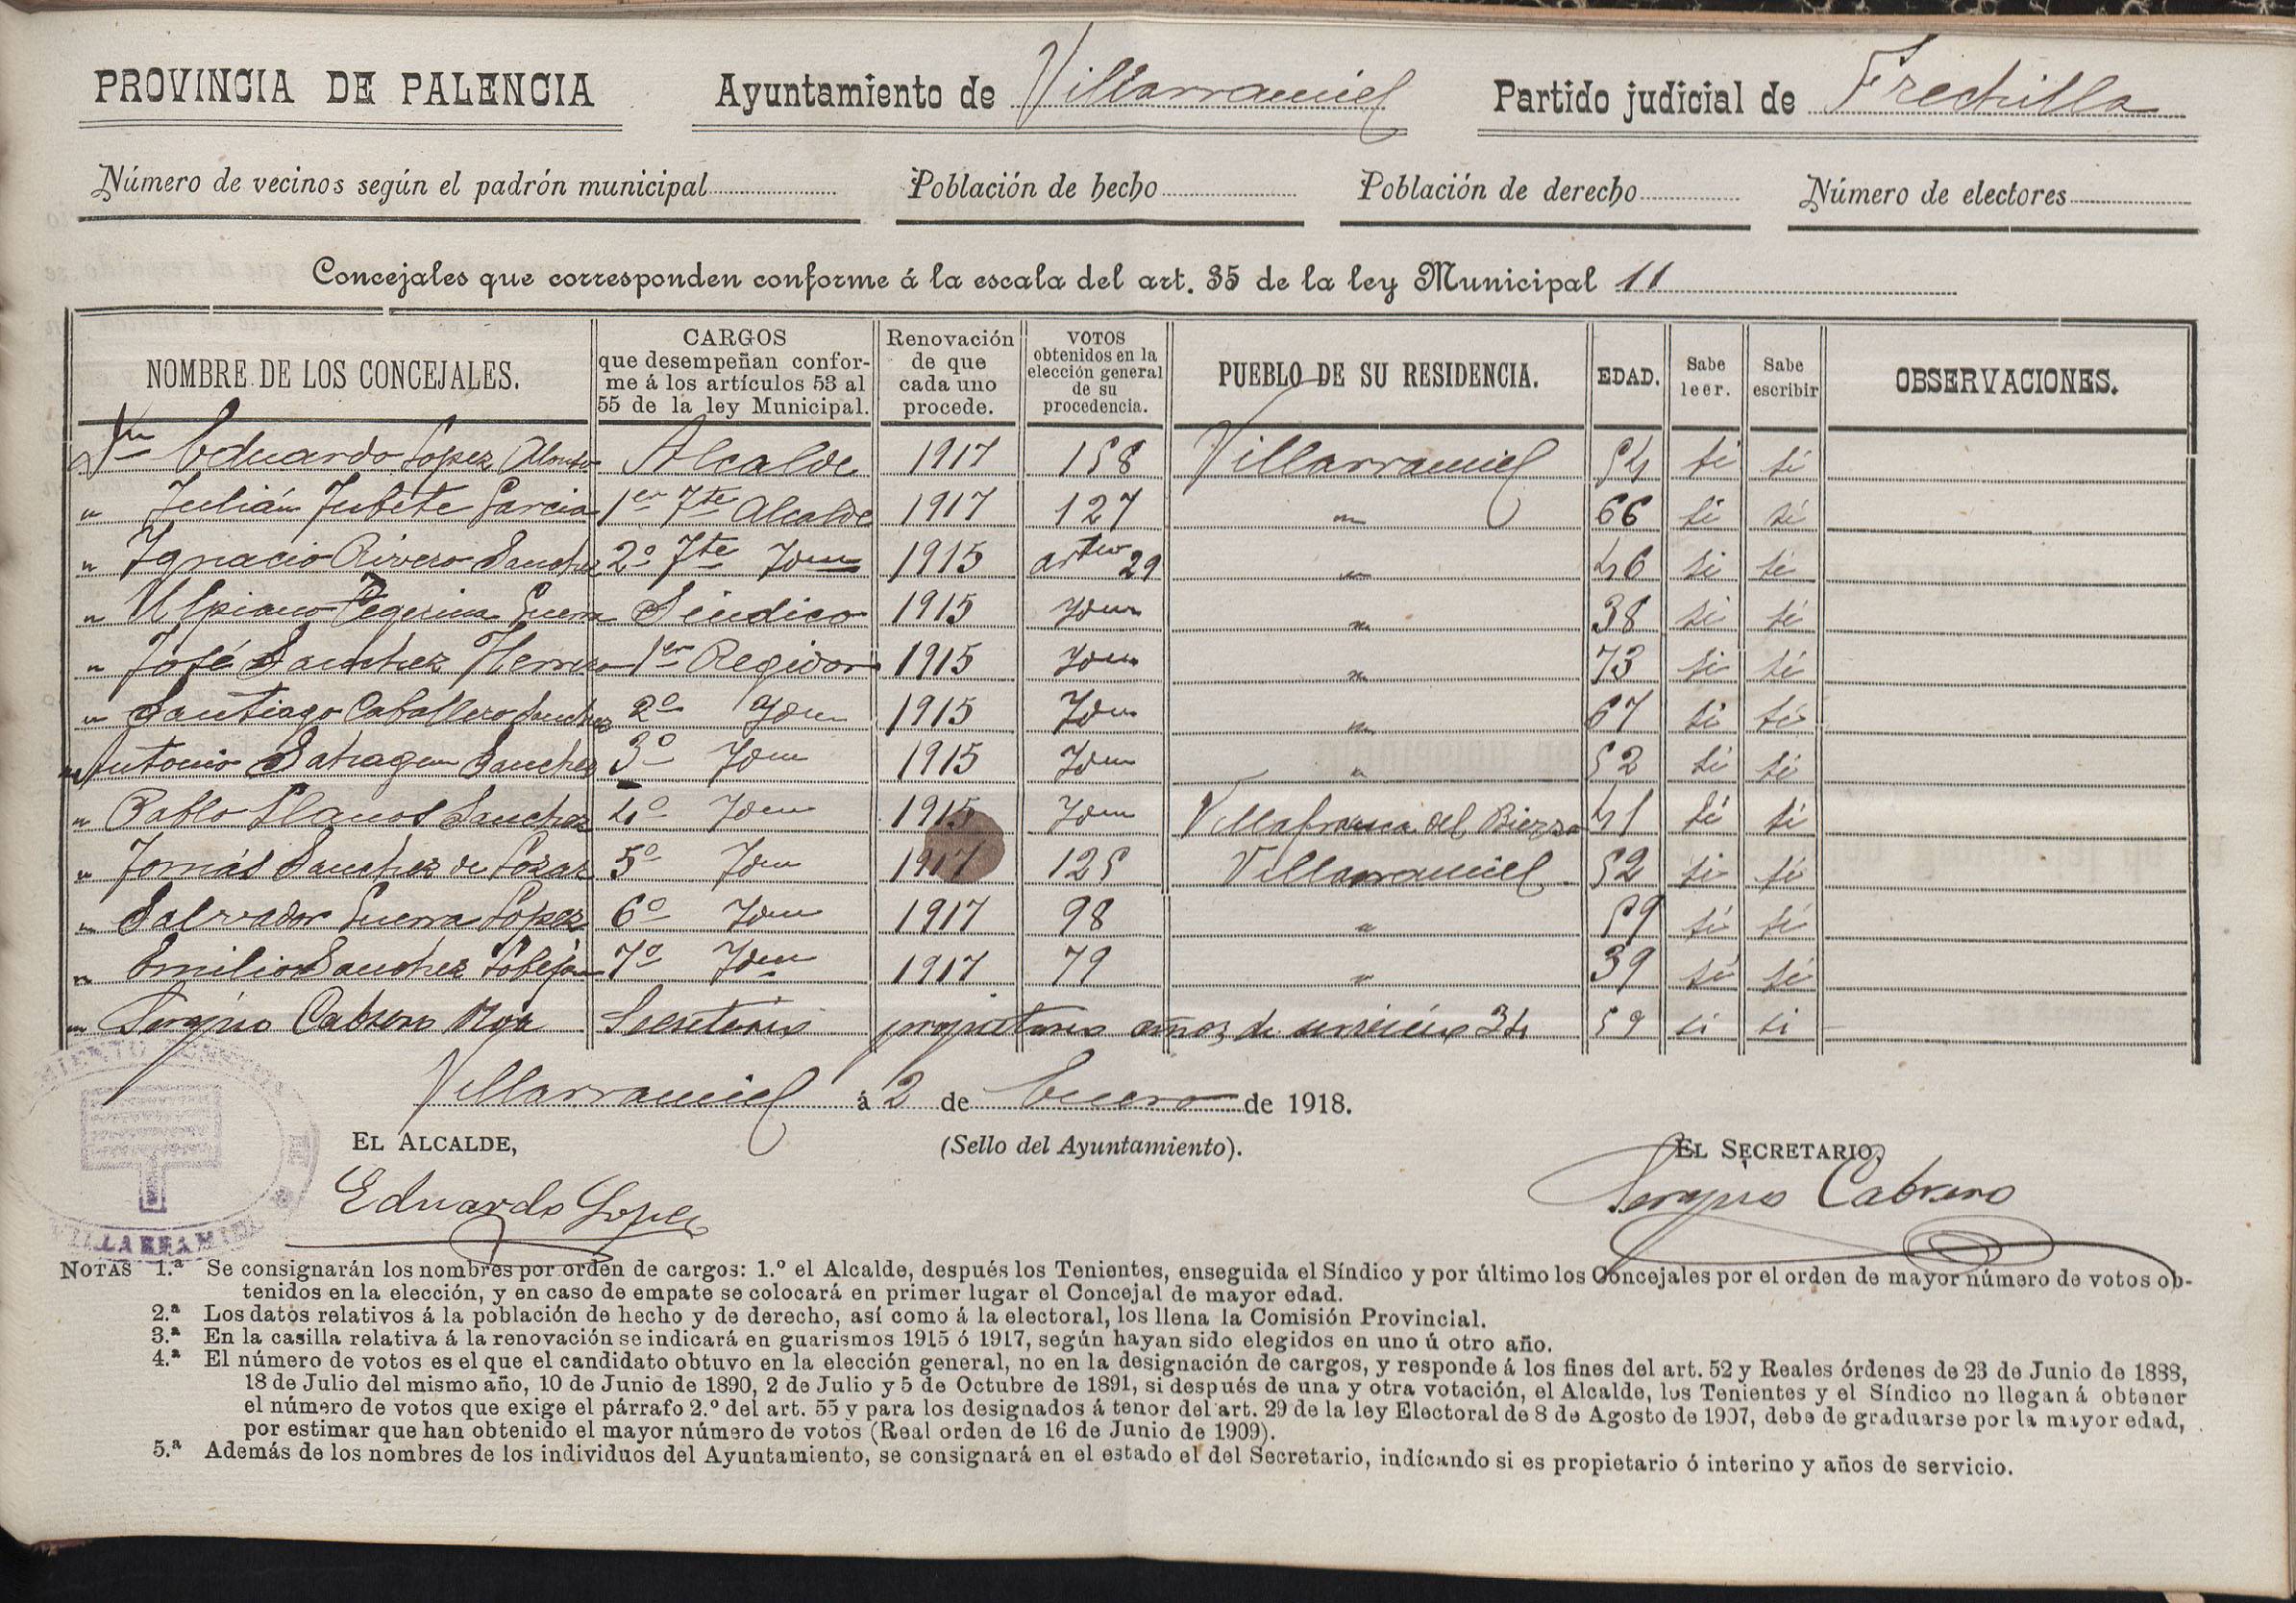 PROVINCIA DE PALENCIA Ayuntamiento de Villarramiel Partido judicial de Frechilla
Número de vecinos según el padrón municipal Población de hecho Población de derecho Número de electores
Concejales que corresponden conforme á la escala del art. 35 de la ley Municipal 11
NOMBRE DE LOS CONCEJALES. CARGOS que desempeñan conforme á los artículos 53 al 55 de la ley Municipal. Renovación de que cada uno procede. VOTOS obtenidos en la elección general de su procedencia. PUEBLO DE SU RESIDENCIA. EDAD. Sabe leer. Sabe escribir OBSERVACIONES.
Dn Eduardo López Alonso Alcalde 1917 158 Villarramiel 54 si si
" Julián Jubete Garcia 1er Tte Alcalde 1917 127 " 66 si si
" Ignacio Rivero Sanchez 2º Tte Idem 1915 artº 29 " 46 si si
" Ulpiano Pegerina Guerra Síndico 1915 Idem " 38 si si
" José Sanchez Herrero 1er Regidor 1915 Idem " 73 si si
" Santiago Caballero Sanchez 2º Idem 1915 Idem " 67 si si
" Antonio Sanchez 3º Idem 1915 Idem " 52 si si
" Pablo Llanos Sanchez 4º Idem 1915 Idem Villafranca del Bierzo 41 si si
" Tomás Sanchez de Pozas 5º Idem 1917 125 Villarramiel 52 si si
" Salvador Guerra López 6º Idem 1917 98 " 59 si si
" Emilio Sanchez Lobejón 7º Idem 1917 79 " 39 si si
" Sergio Cabrero Secretario propietario años de servicios 34 59 si si
Villarramiel á 2 de Enero de 1918.
EL ALCALDE, (Sello del Ayuntamiento). EL SECRETARIO,
Eduardo Lopez Sergio Cabrero
VILLARRAMIEL
NOTAS 1.ª Se consignarán los nombres por orden de cargos: 1.º el Alcalde, después los Tenientes, enseguida el Síndico y por último los Concejales por el orden de mayor número de votos ob-
tenidos en la elección, y en caso de empate se colocará en primer lugar el Concejal de mayor edad.
2.ª Los datos relativos á la población de hecho y de derecho, así como á la electoral, los llena la Comisión Provincial.
3.ª En la casilla relativa á la renovación se indicará en guarismos 1915 ó 1917, según hayan sido elegidos en uno ú otro año.
4.ª El número de votos es el que el candidato obtuvo en la elección general, no en la designación de cargos, y responde á los fines del art. 52 y Reales órdenes de 23 de Junio de 1888,
18 de Julio del mismo año, 10 de Junio de 1890, 2 de Julio y 5 de Octubre de 1891, si después de una y otra votación, el Alcalde, los Tenientes y el Síndico no llegan á obtener
el número de votos que exige el párrafo 2.º del art. 55 y para los designados á tenor del art. 29 de la ley Electoral de 8 de Agosto de 1907, debe de graduarse por la mayor edad,
por estimar que han obtenido el mayor número de votos (Real orden de 16 de Junio de 1909).
5.ª Además de los nombres de los individuos del Ayuntamiento, se consignará en el estado el del Secretario, indicando si es propietario ó interino y años de servicio.